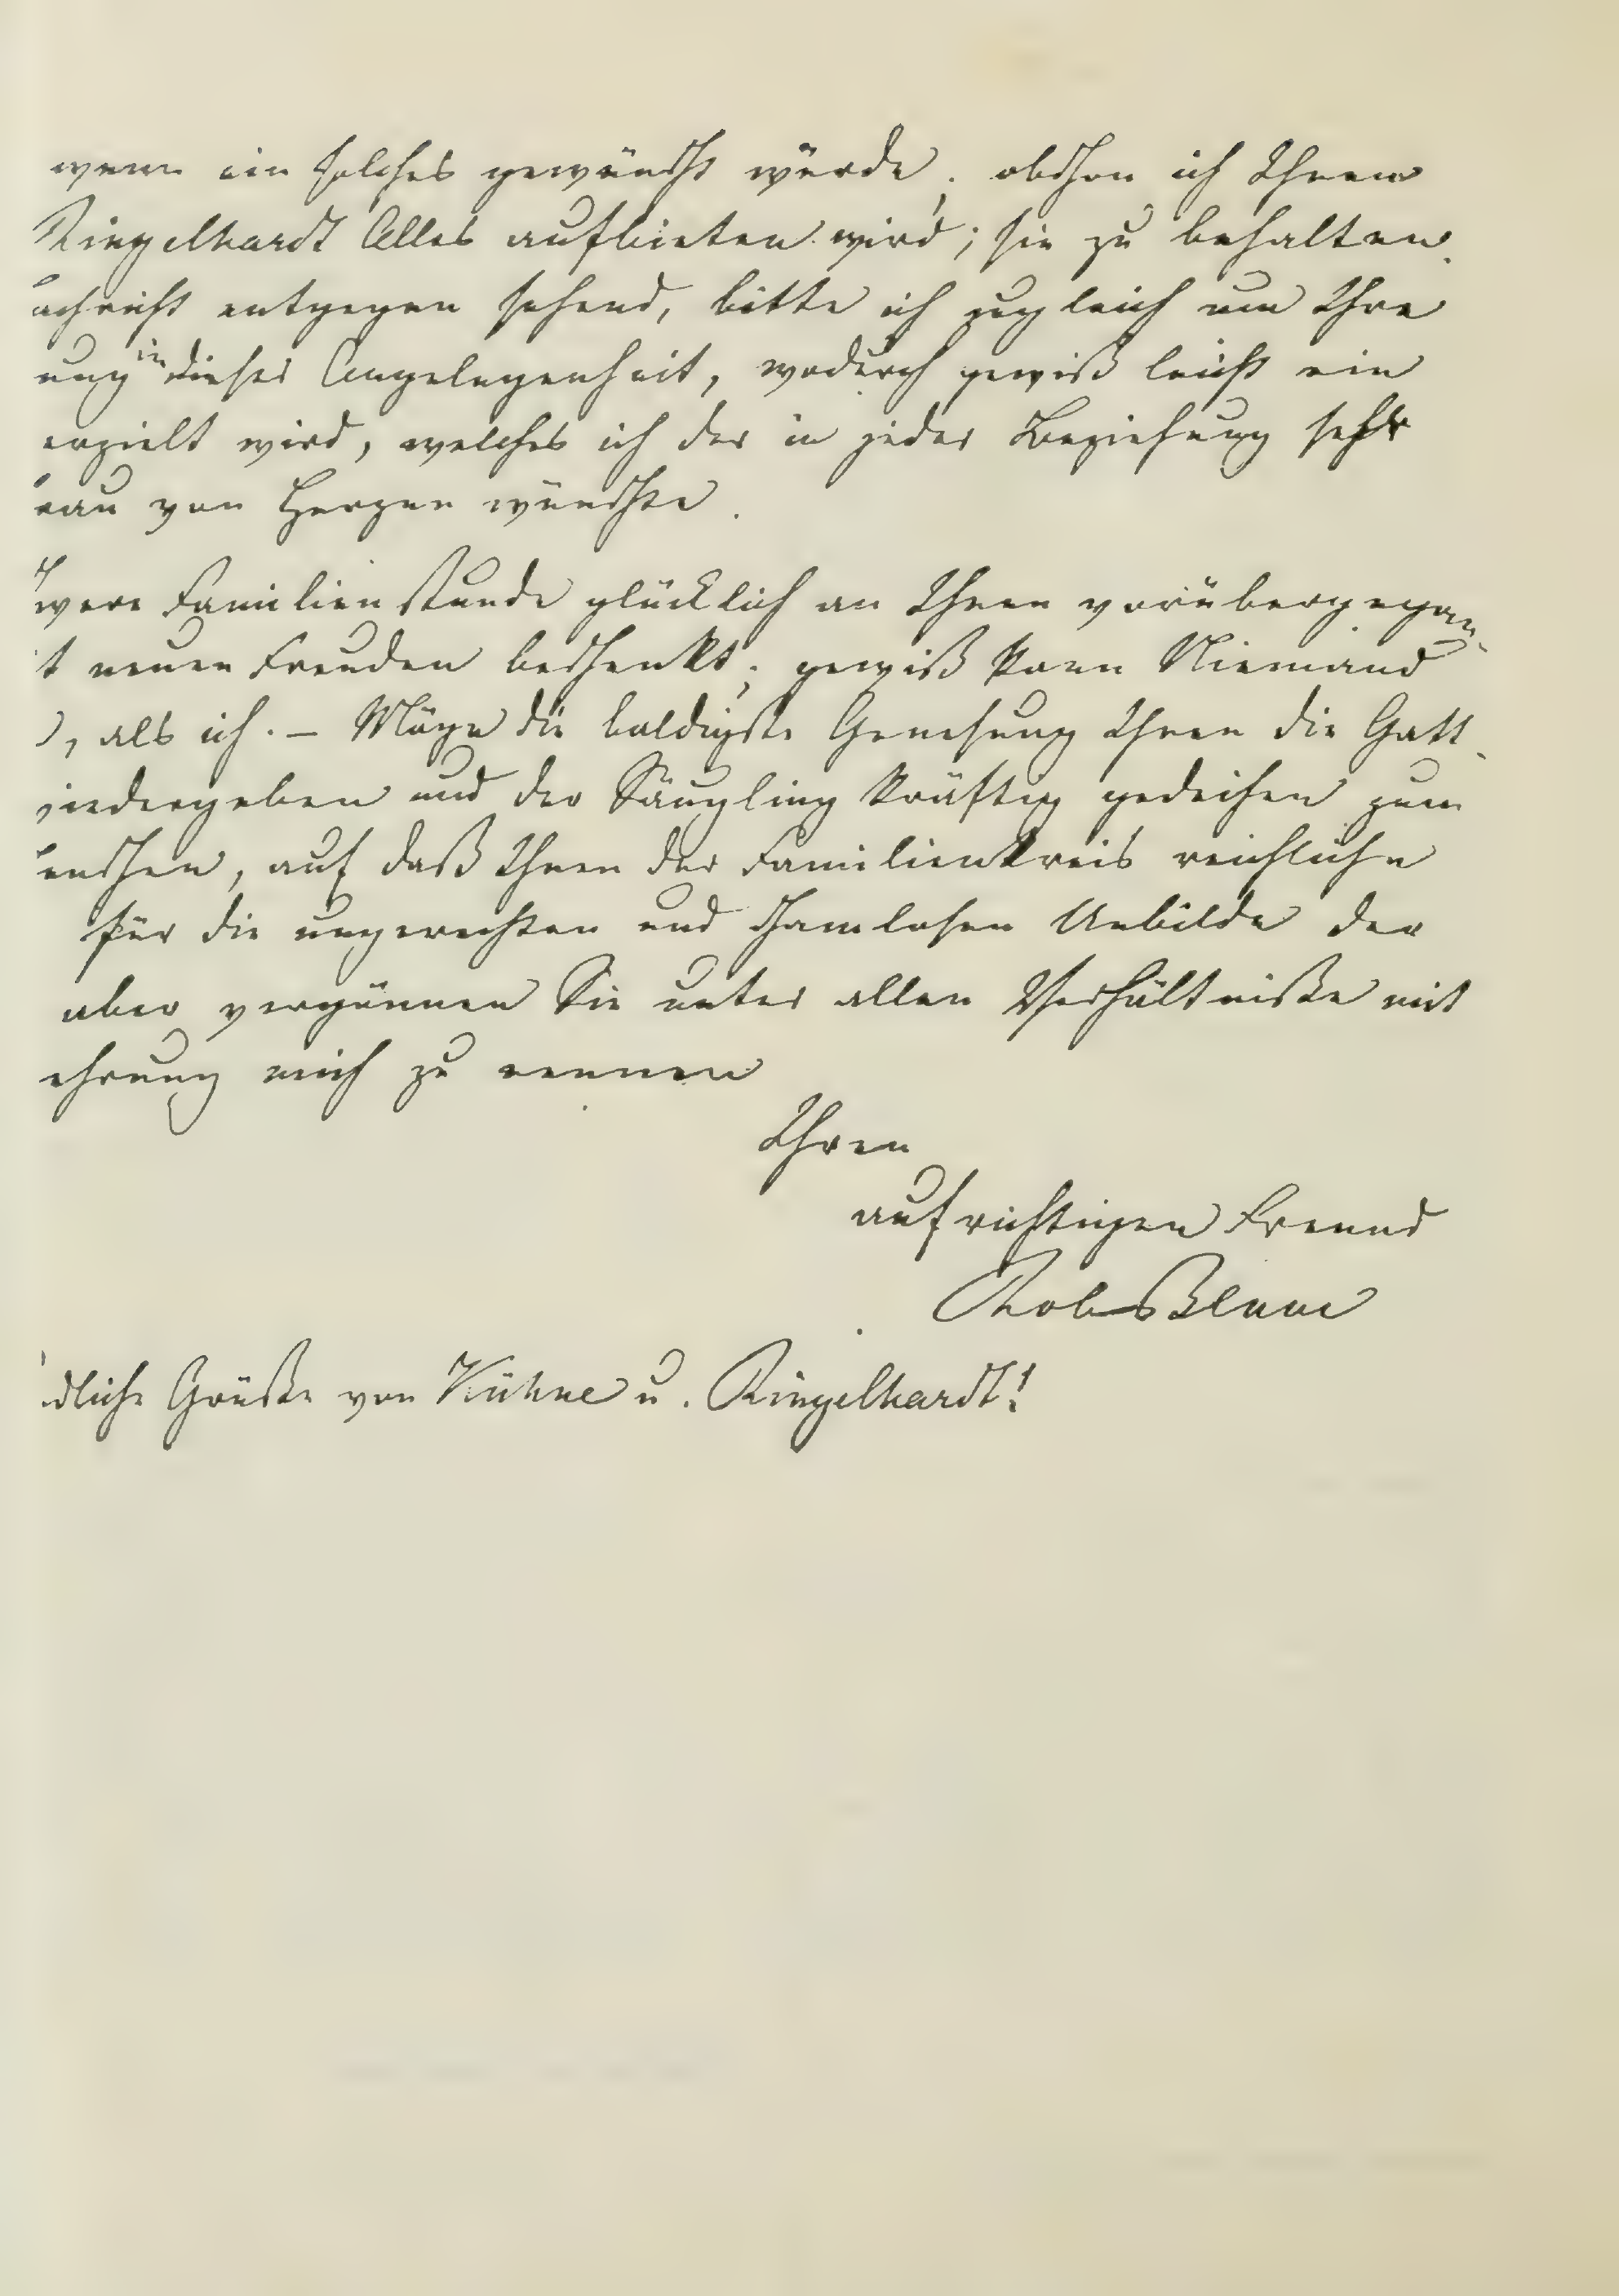 wenn ein solches gewünscht würde, obschon ich Ihnen
Ringelhardt Alles aufbieten wird; sie zu behalten.
achricht entgegen sehend, bitte ich zugleich um Ihre
ung in dieser Angelegenheit, wodurch gewiß leicht ein
erzielt wird, welches ich der in jeder Beziehung sehr
rau von Herzen wünschte.
were Familienstunde glücklich an Ihnen vorübergegan-
t neuen Freuden beschenkt; gewiß kann Niemand
, als ich. – Möge die baldigste Genesung Ihnen die Gatt-
iedergeben und der Säugling kräftig gedeihen zum
enschen, auf daß Ihnen der Familienkreis reichliche
für die ungerechten und schamlosen Unbilde der
aber vergönnen Sie unter allen Verhältniße mit
ehrung mich zu nennen
Ihren
aufrichtigen Freund
Rob Blum
dliche Grüße von Kühne u. Ringelhardt!